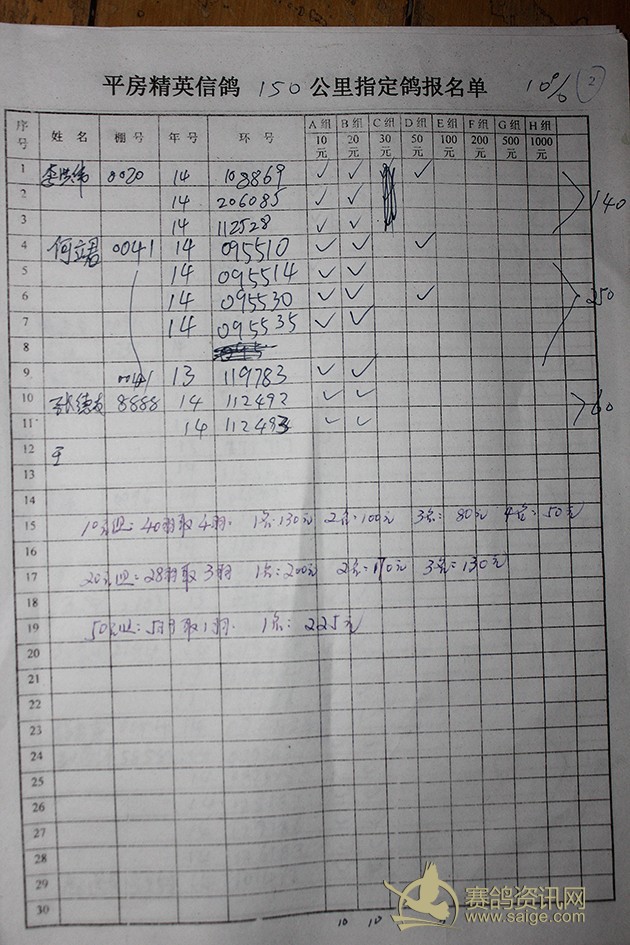 平房精英信鸽 150 公里指定鸽报名单 10% 2
序号 姓名 棚号 年号 环号 A组 B组 C组 D组 E组 F组 G组 H组
10元 20元 30元 50元 100元 200元 500元 1000元
1 0020 14 108869 ✓ ✓ ✓
2 14 206085 ✓ ✓ 140
3 14 112528 ✓ ✓
4 何立君 0041 14 095510 ✓ ✓ ✓
5 14 095514 ✓ ✓
6 14 095530 ✓ ✓ ✓ 250
7 14 095535 ✓ ✓
8
9 0041 13 119783 ✓ ✓
10 8888 14 112492 ✓ ✓ 60
11 14 112493 ✓ ✓
12
13
14
15 10元组:40羽取4羽. 1名:130元 2名:100元 3名:80元 4名:50元
16
17 20元组:28羽取3羽 1名:200元 2名:170元 3名:130元
18
19 50元组:5羽取1羽. 1名:225元
20
21
22
23
24
25
26
27
28
29
30
10 10
赛鸽资讯网
www.saige.com